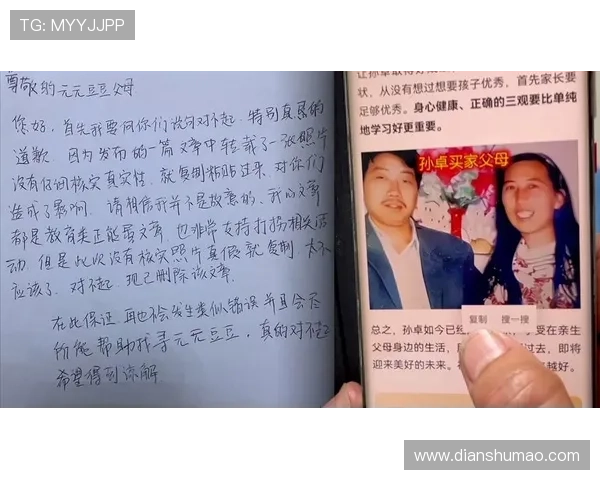 TG: MYYJJPP
尊敬的元元豆豆父母
您好，首先我要向你们说句对不起，特别真恳的
道歉，因为发布的一篇文章中转载了一张照片
没有仔细核实真实性，就复制粘贴过来，对你们
造成了影响，请相信我并不是故意的，我的文章
都是教育类正能量文章，也非常支持打拐相关活
动，但是此次没有核实照片真假就复制，太不
应该了，对不起，现已删除该文章，
在此保证，再也不会发生类似错误并且会尽
所能帮助找寻元元豆豆，真的对不起
希望得到谅解
让孙卓取得好成
状，从没有想过想要孩子优秀，首先家长要
足够优秀。身心健康、正确的三观要比单纯
地学习好更重要。
孙卓买家父母
复制 搜一搜
总之，孙卓如今已经 享受在亲生
父母身边的生活， 过去，即将
迎来美好的未来。 越好。
www.dianshumao.com